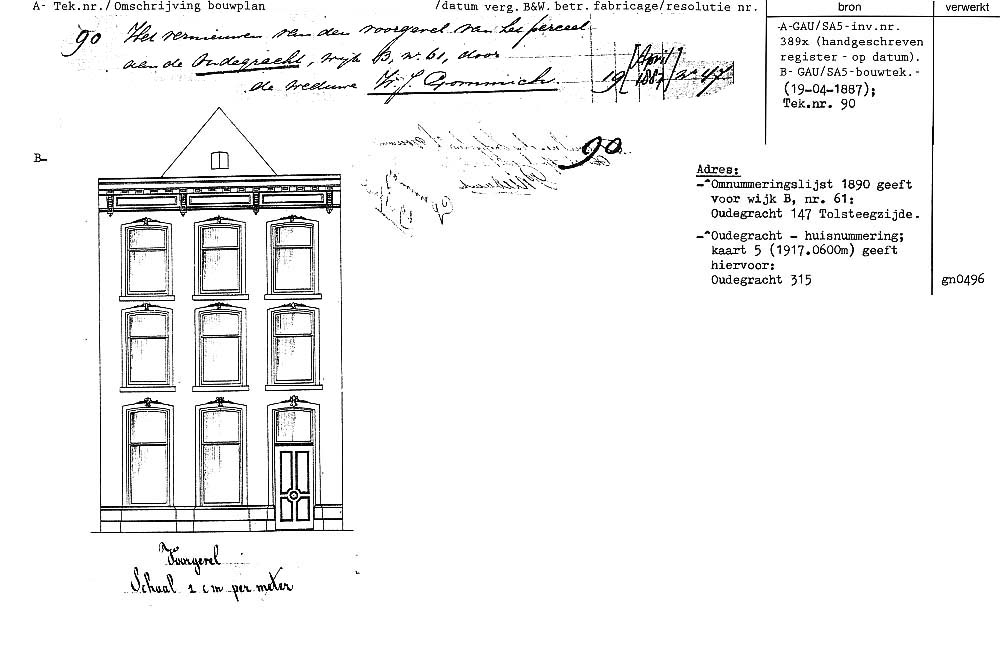 A- Tek.nr./Omschrijving bouwplan /datum verg. B&W. betr. fabricage/resolutie nr. bron verwerkt
90 Het vernieuwen van den voorgevel van het perceel
aan de Oudegracht, wijk B, nº 61, door
de weduwe
19 [April 1887] nº 47
-A-GAU/SA5-inv.nr.
389x (handgeschreven
register - op datum).
B- GAU/SA5-bouwtek.-
(19-04-1887);
Tek.nr. 90
B-
90
Adres:
-^Omnummeringslijst 1890 geeft
voor wijk B, nr. 61:
Oudegracht 147 Tolsteegzijde.
-^Oudegracht - huisnummering;
kaart 5 (1917.0600m) geeft
hiervoor:
Oudegracht 315
gn0496
Voorgevel
Schaal 2 cm per meter